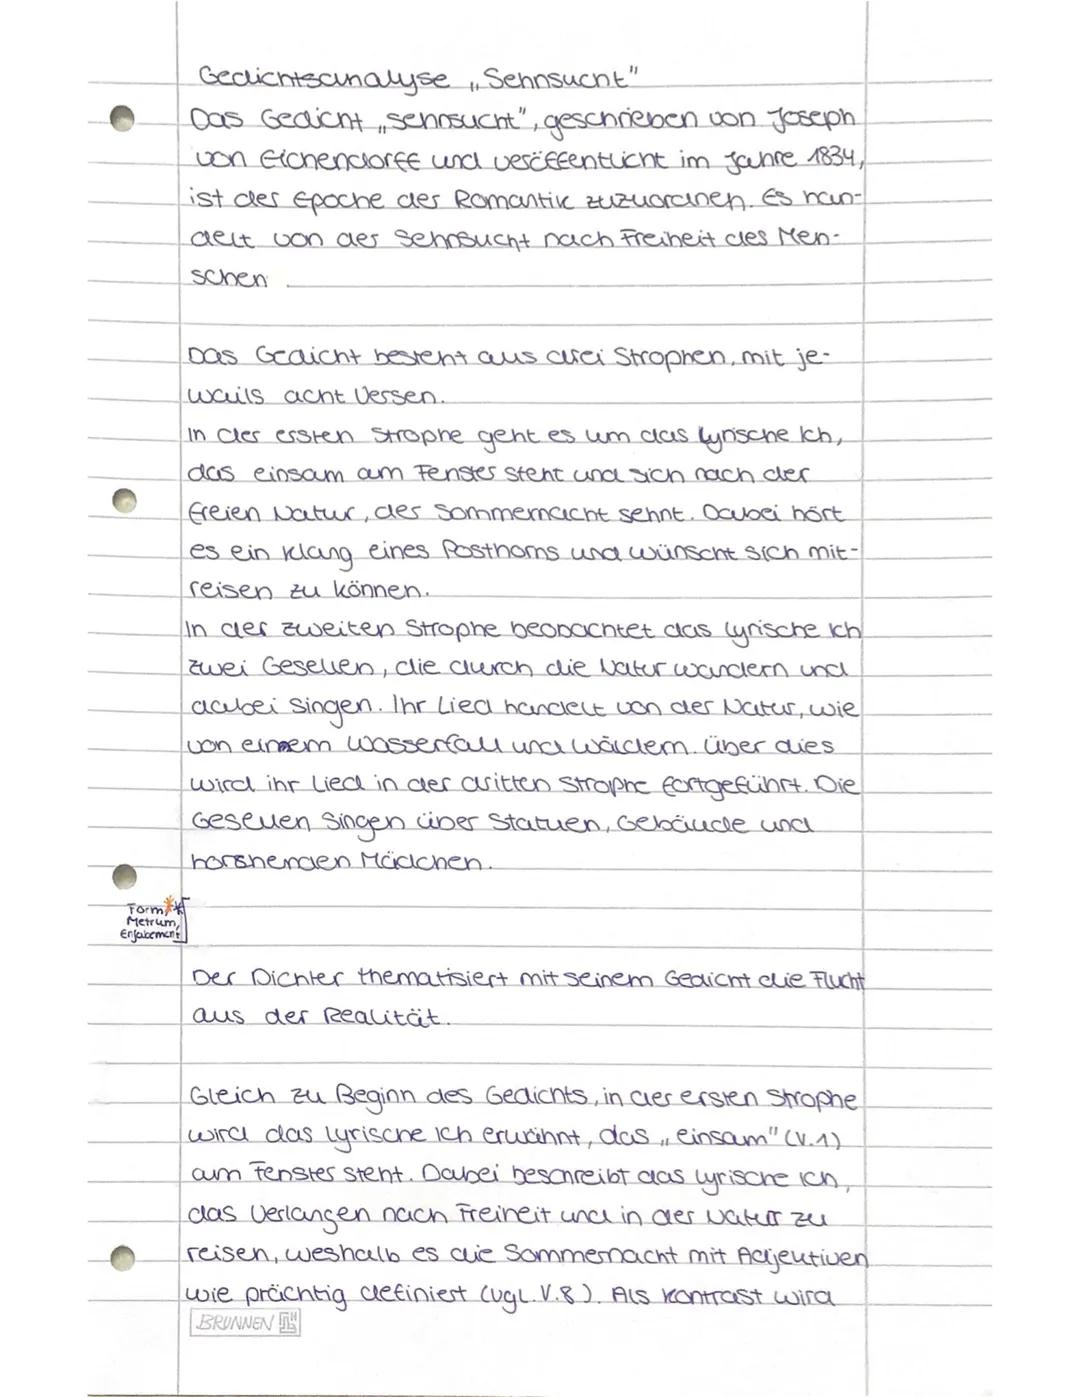 Gedichtsanalyse „Sehnsucht"
Das Gedicht „Sehnsucht", geschrieben von Joseph
von Eichendorff und veröffentlicht im Jahre 1834,
ist der Epoche der Romantik zuzuordnen. Es han-
delt von der Sehnsucht nach Freiheit des Men-
schen
Das Gedicht besteht aus drei Strophen, mit je-
wails acht Versen.
In der ersten Strophe geht es um das lyrische Ich,
das einsam am Fenster steht und sich nach der
freien Natur, der Sommernacht sehnt. Dabei hört
es ein Klang eines Posthorns und wünscht sich mit-
reisen zu können.
In der zweiten Strophe beobachtet das lyrische Ich
zwei Gesellen, die durch die Natur wandern und
dabei singen. Ihr Lied handelt von der Natur, wie
von einem Wasserfall und Wäldern. über dies
wird ihr Lied in der dritten Strophe fortgeführt. Die
Gesellen singen über Statuen, Gebäude und
horshenden Mädchen.
Form,
Metrum,
Enjabement
Der Dichter thematisiert mit seinem Gedicht die Flucht
aus der Realität.
Gleich zu Beginn des Gedichts, in der ersten Strophe
wird das lyrische Ich erwähnt, das „einsam" (V.1)
am Fenster steht. Dabei beschreibt das lyrische Ich,
das Verlangen nach Freiheit und in der Natur zu
reisen, weshalb es die Sommernacht mit Adjektiven
wie prächtig definiert (vgl. V.8). Als Kontrast wird
BRUNNEN